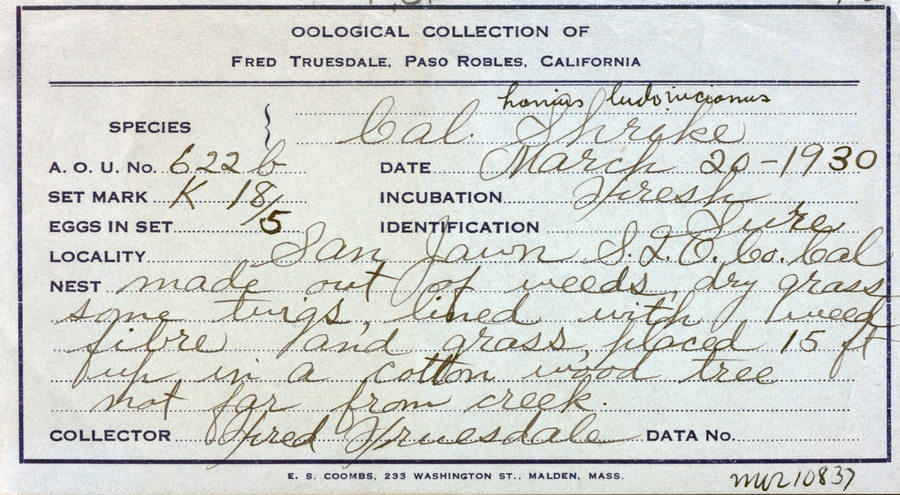 OOLOGICAL COLLECTION OF
FRED TRUESDALE, PASO ROBLES, CALIFORNIA
Lanius ludovicianus
SPECIES } Cal. Shrike
A. O. U. No. 622 b DATE March 20-1930
SET MARK K 18/5 INCUBATION Fresh
EGGS IN SET IDENTIFICATION Sure
LOCALITY San Jawn S.L.O. Co. Cal
NEST made out of weeds, dry grass
some twigs, lined with weed
fibre and grass, placed 15 ft
up in a cotton wood tree
not far from creek.
COLLECTOR Fred Truesdale DATA No.
E. S. COOMBS, 233 WASHINGTON ST., MALDEN, MASS.